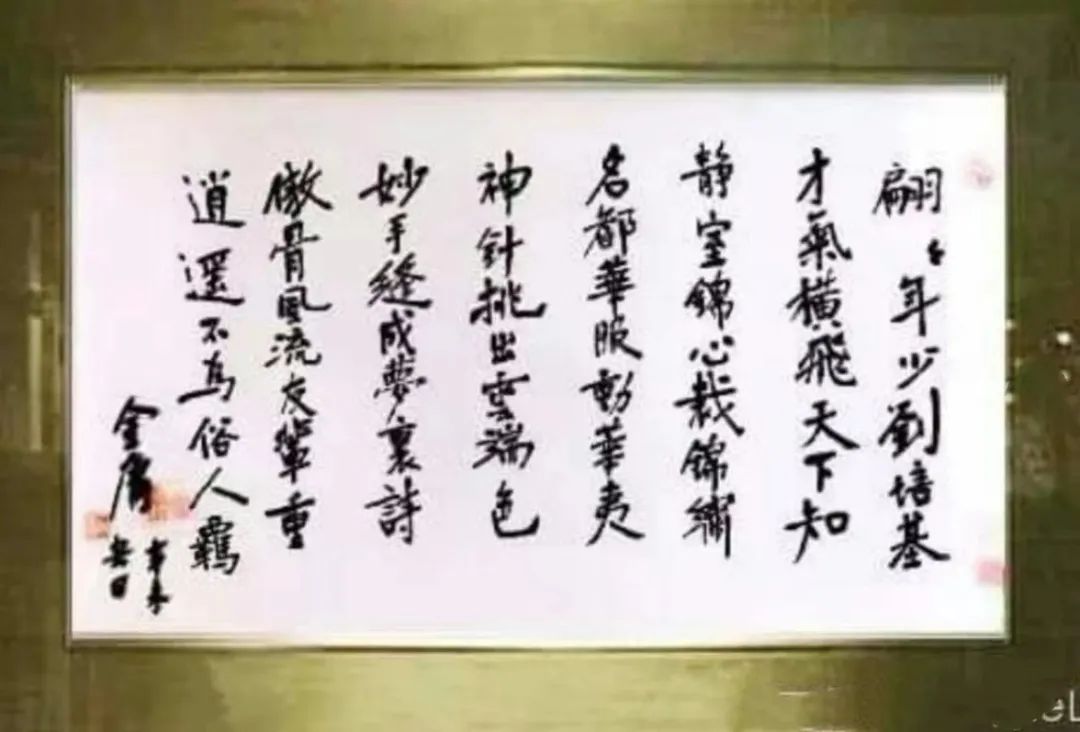 翩〻年少劉培基
才氣橫飛天下知
静室錦心裁錦繡
名都華服動華夷
神針挑出雲端色
妙手縫成夢裏詩
傲骨風流友輩重
逍遥不為俗人羈
金庸